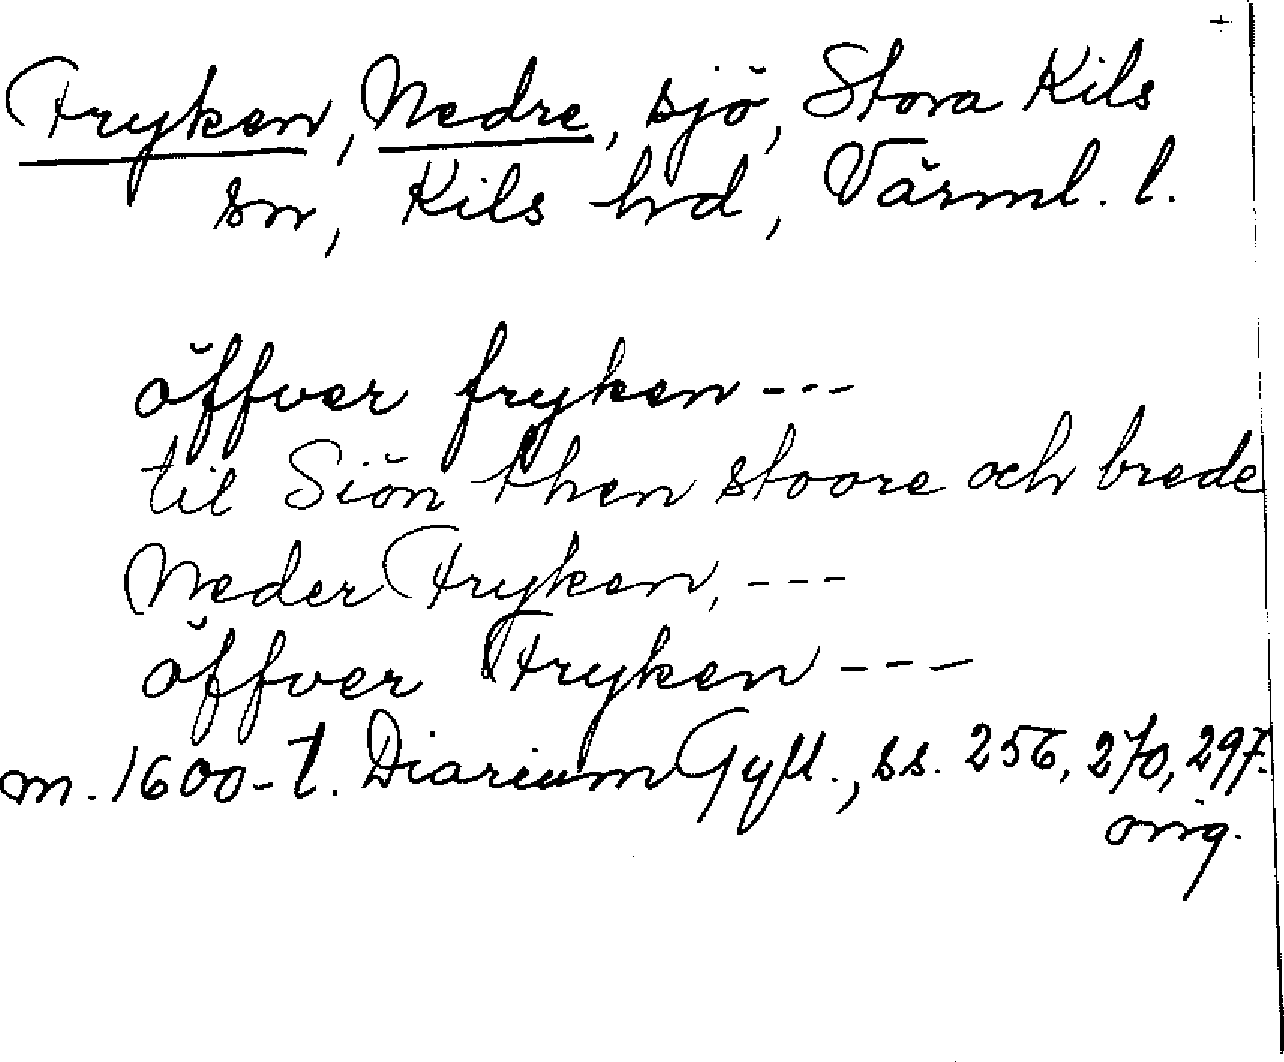 +
Fryken, Nedre, sjö, Stora Kils
sn, Kils hd, Värml. l.
öffver fryken ---
til Siön then stoore och brede
Neder Fryken, ---
öffver Fryken ---
m. 1600-t. Diarium Gyll., ss. 256, 270, 297.
orig.